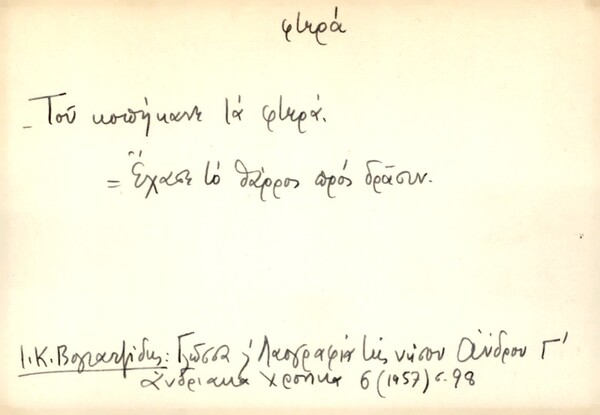 φτερά
- Τοῦ κοπήκανε τά φτερά.
= Ἔχασε τό θάρρος πρός δρᾶσιν.
Ι. Κ. Βογιατζίδης: Γλῶσσα κ Λαογραφία τῆς νήσου Ἄνδρου Γ'
Ἀνδριακά Χρονικα 6 (1957) σ. 98